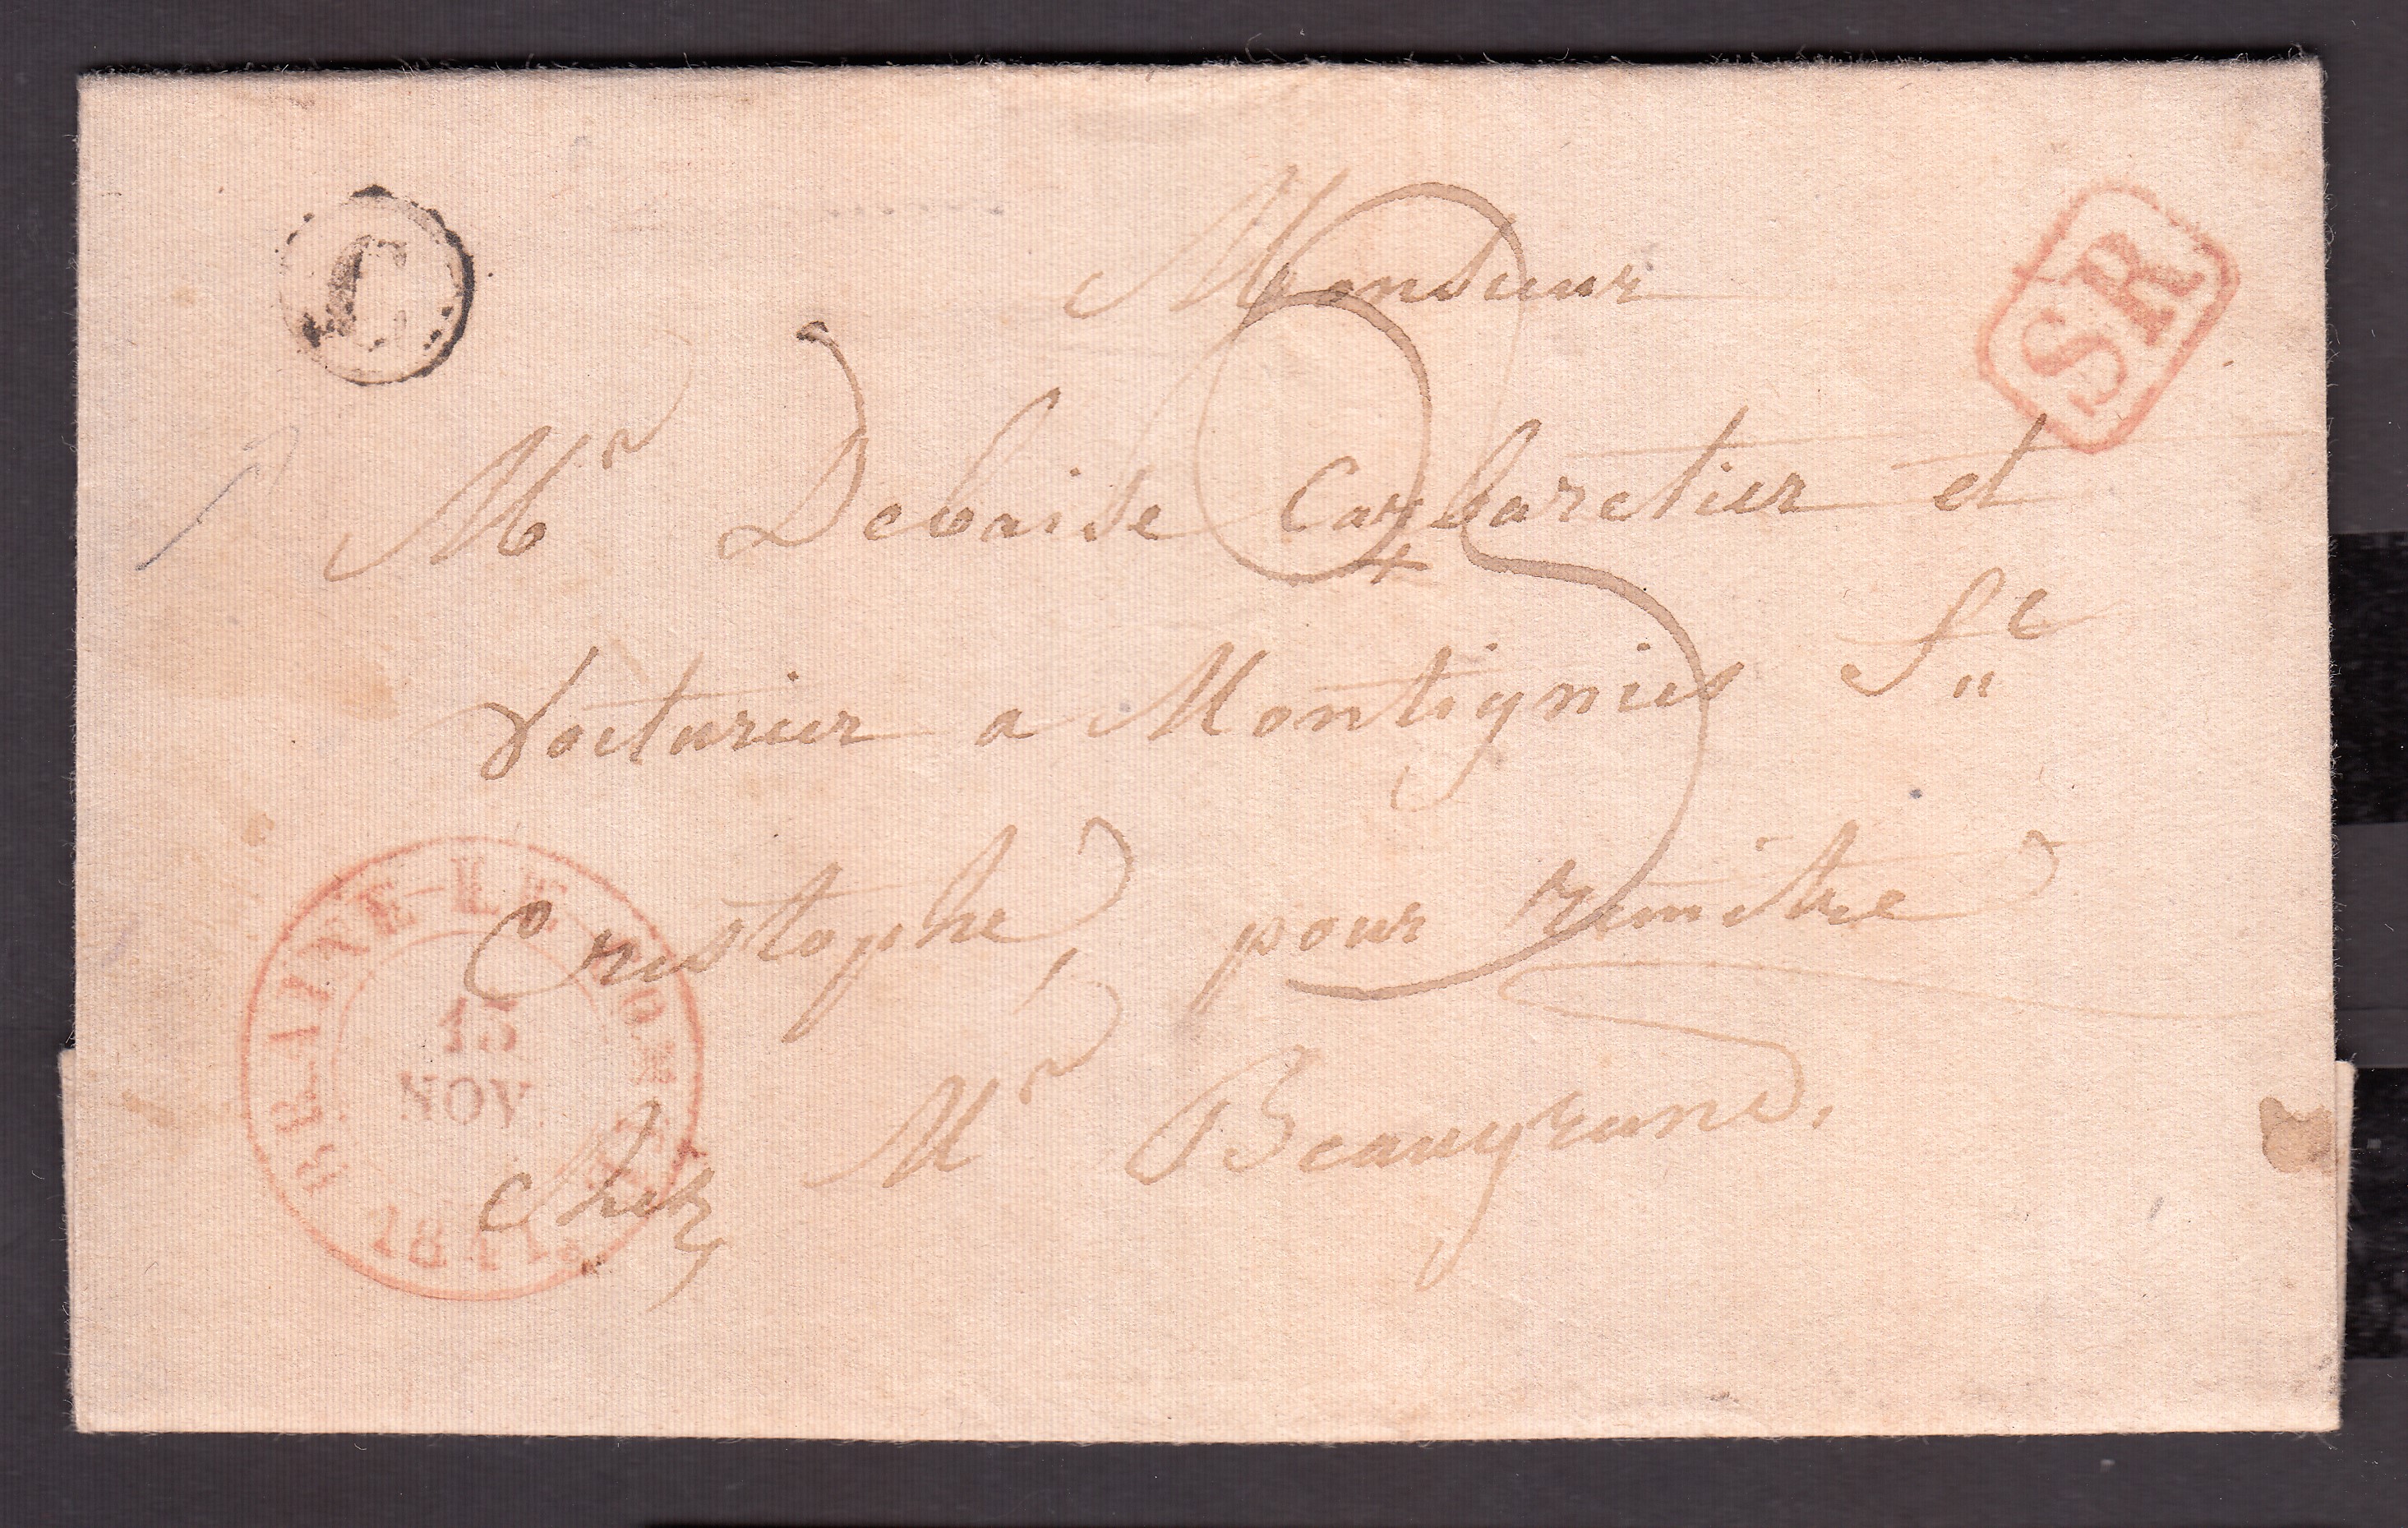 C.
SR
Monsieur
Mr Debaise Cabaretier et
Voiturier a Montignies St
Cristophe, pour remêttre
chez Mr Beaugrand,
BRAINE-LE-COMTE
15
NOV
1841
3